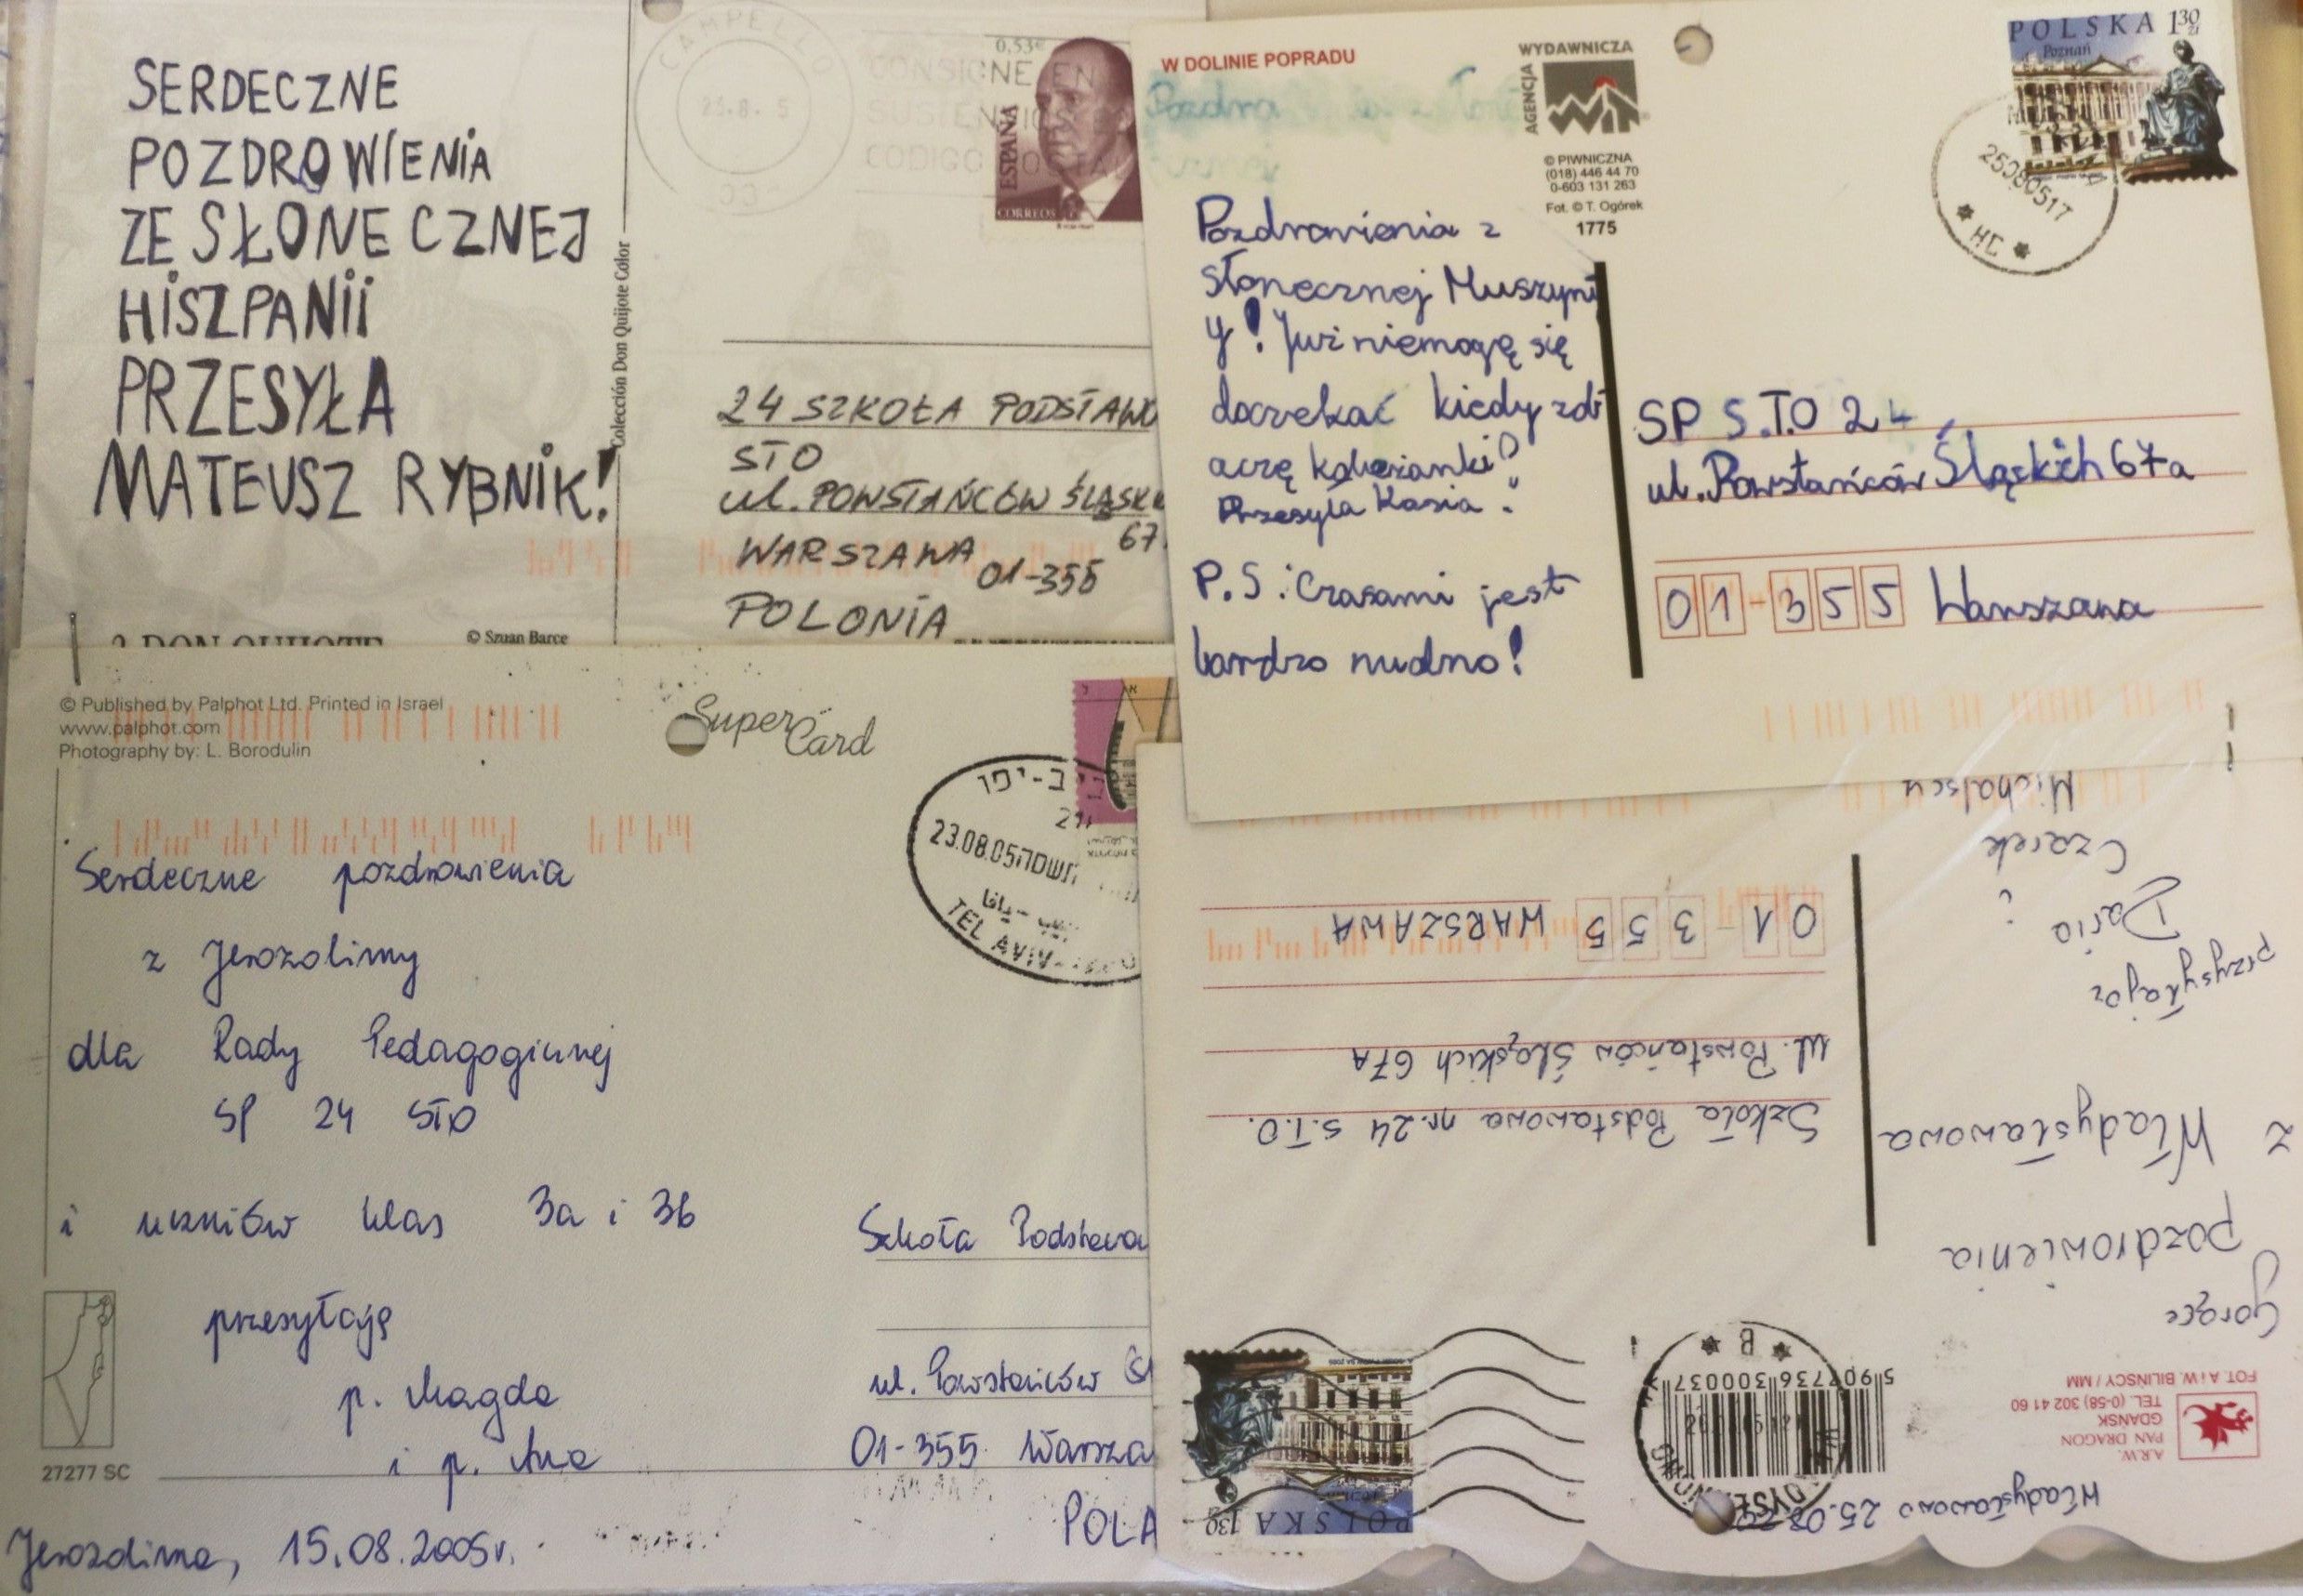 SERDECZNE
POZDROWIENIA
ZE SŁONECZNEJ
HISZPANII
PRZESYŁA
MATEUSZ RYBNIK!
Colección Don Quijote Color
© Szuan Barce
CAMPELLO
23.8. 5
CONSIGNE EN
CODIGO POSTAL
0,53€
ESPAÑA
CORREOS
24 SZKOŁA PODSTAWO
STO
ul. POWSTAŃCÓW ŚLĄSK
67
WARSZAWA 01-355
POLONIA
W DOLINIE POPRADU
AGENCJA
WYDAWNICZA
© PIWNICZNA
(018) 446 44 70
0-603 131 263
Fot. © T. Ogórek
1775
Pozdrowienia z
słonecznej Muszyn
y! Już niemogę się
doczekać kiedy zob
aczę koleżanki?
Przesyła Kasia.
P.S: Czasami jest
bardzo nudno!
POLSKA 1 30 zł
Poznań
25080517
* HC *
SP S.T.O 24
ul. Powstańców Śląskich 67a
01-355 Warszawa
© Published by Palphot Ltd. Printed in Israel
www.palphot.com
Photography by: L. Borodulin
Super Card
23.08.05
TEL AVIV-
Serdeczne pozdrowienia
z Jerozolimy
dla Rady Pedagogicznej
SP 24 STO
i uczniów klas 3a i 3b
przesyłają
p. Magda
i p. Ana
27277 SC
Jerozolima, 15.08.2005r.
Szkoła Podstawo
ul. Powstańców Śl
01-355 Warsza
POLA
Władysławowo 25.08
A.R.W.
PAN DRAGON
GDAŃSK
TEL. (0-58) 302 41 60
FOT. A i W. BILIŃSCY / MM
5 907736 300037
* B *
POLSKA 130 zł
Gorące
pozdrowienia
z Władysławowa
przysyłają
Daria
i
Czarek
Michalscy
Szkoła Podstawowa nr. 24 S.T.O.
ul. Powstańców Śląskich 67A
01-355 WARSZAWA